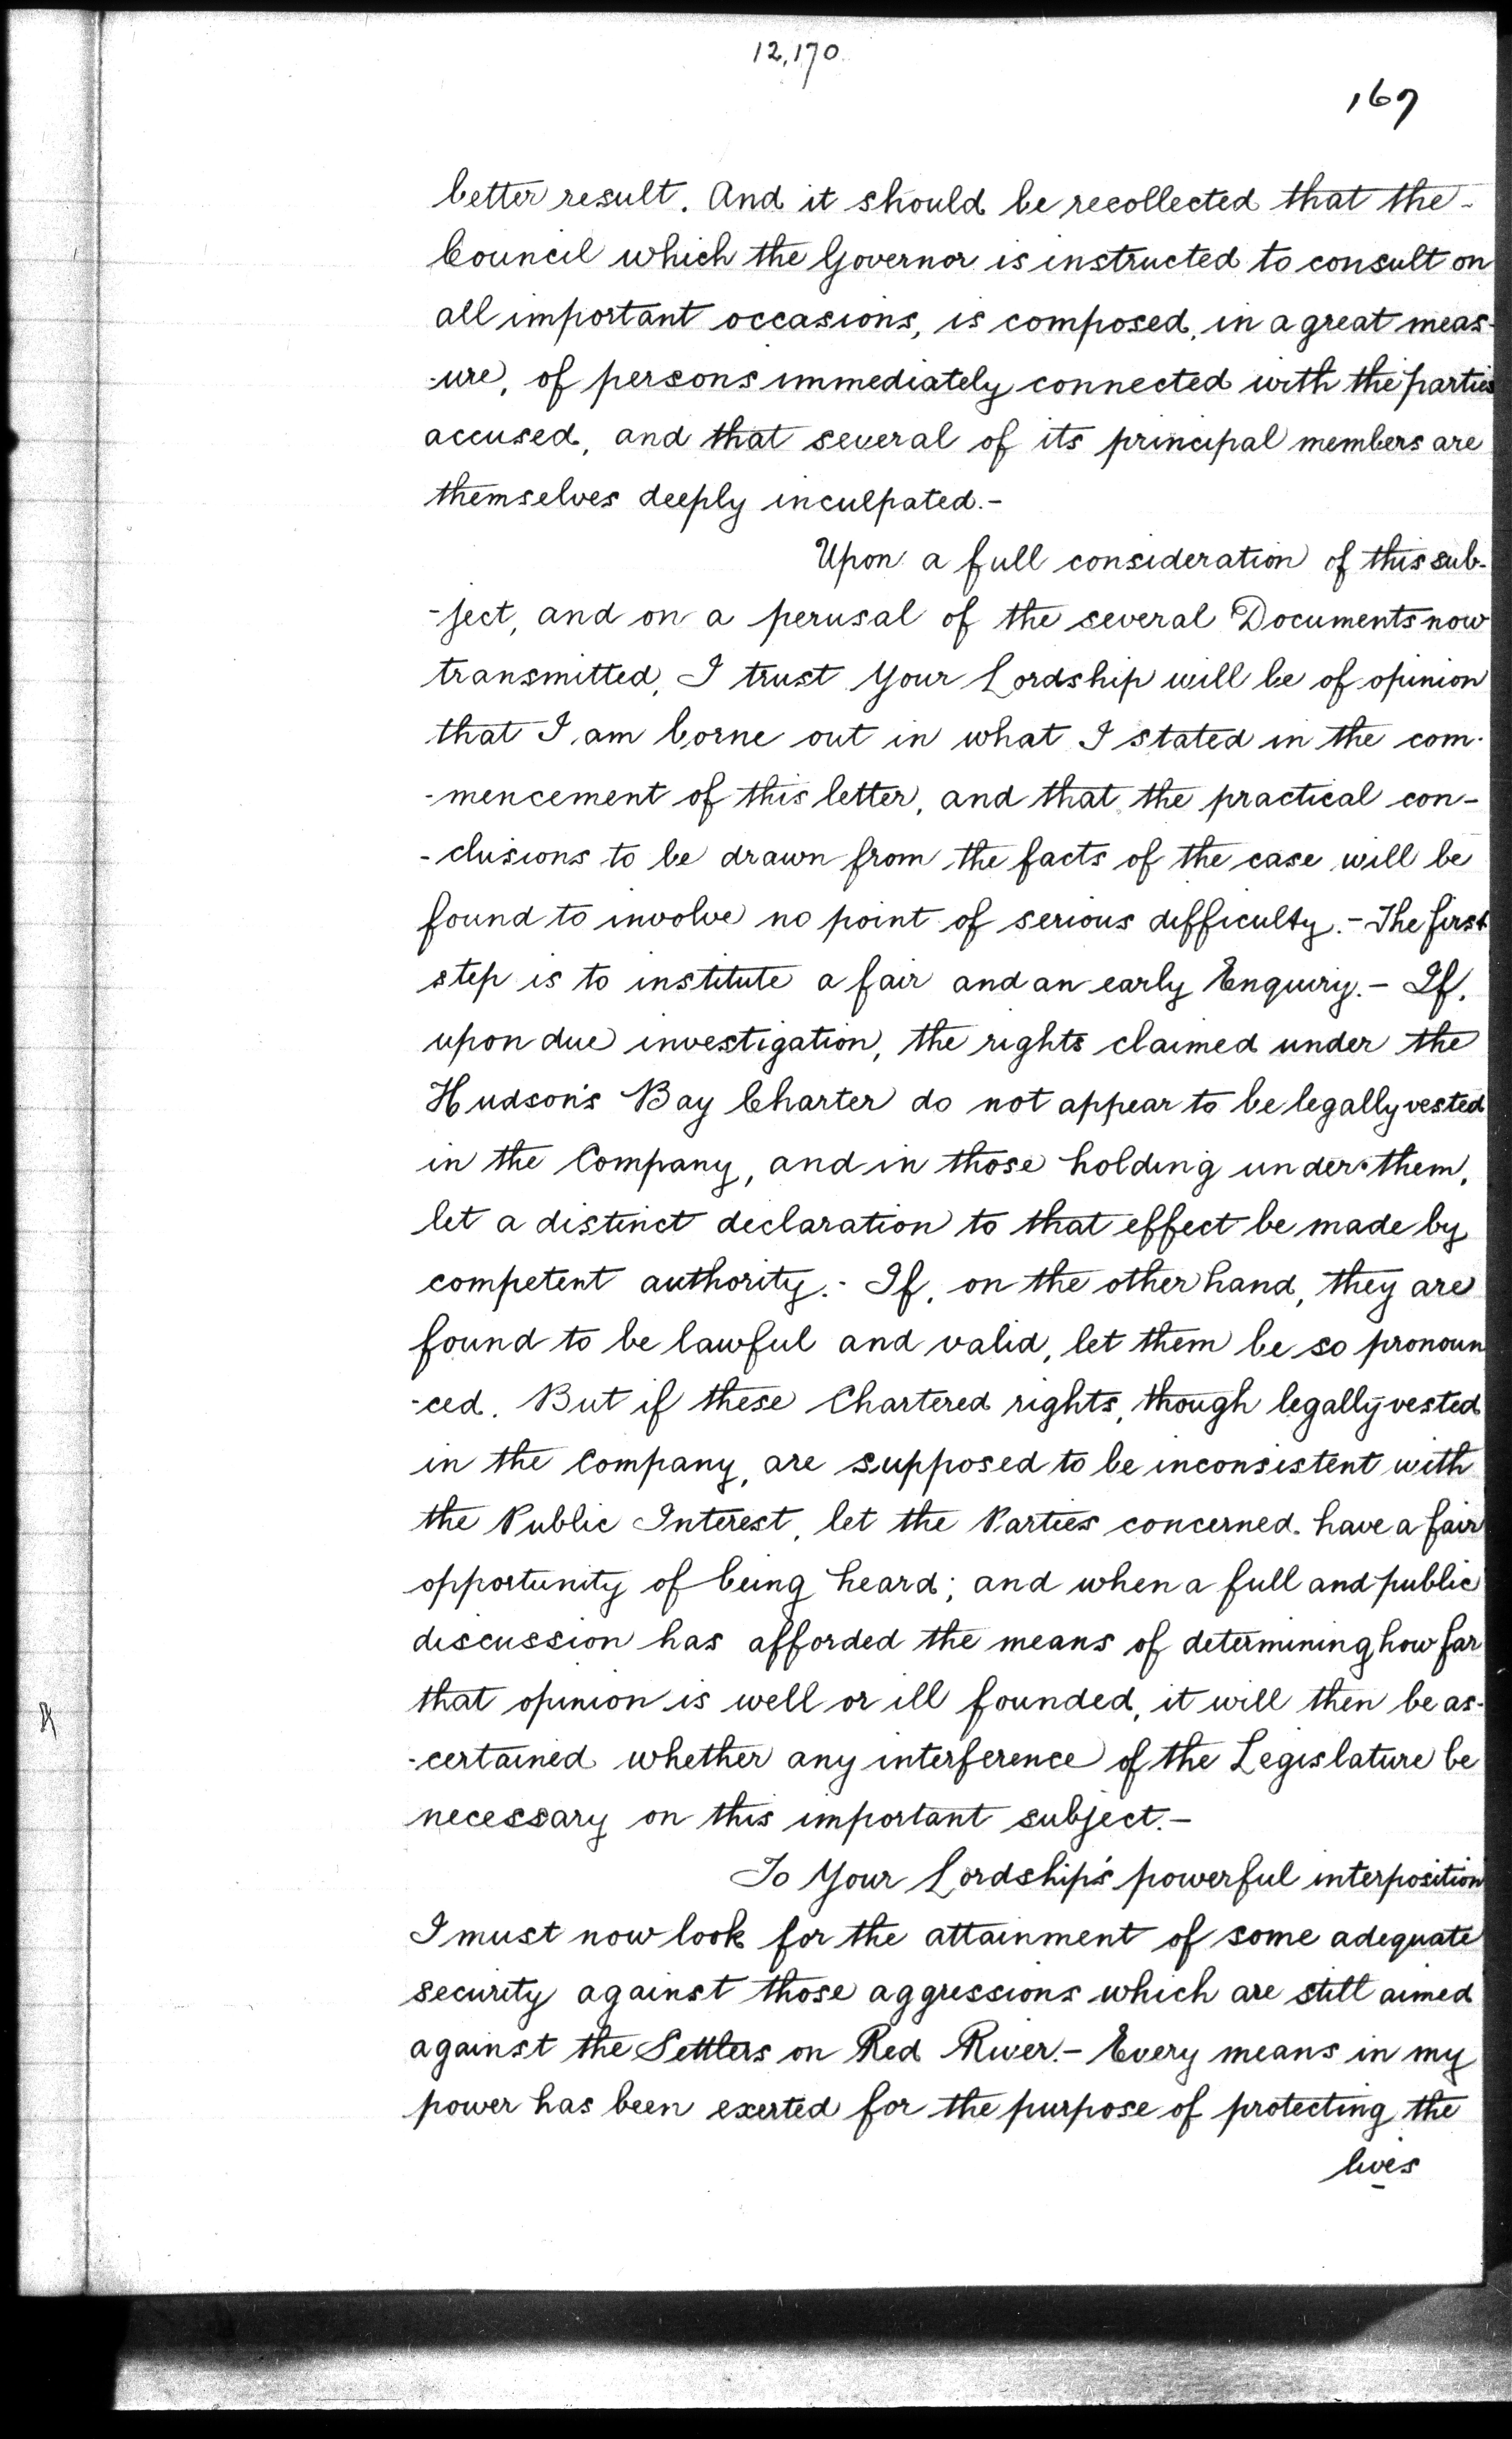 12,170
167
better result. And it should be recollected that the-
Council which the Governor is instructed to consult on
all important occasions, is composed, in a great meas-
-ure, of persons immediately connected with the parties
accused, and that several of its principal members are
themselves deeply inculpated.-
Upon a full consideration of this sub-
-ject, and on a perusal of the several Documents now
transmitted, I trust Your Lordship will be of opinion
that I am borne out in what I stated in the com-
-mencement of this letter, and that the practical con-
-clusions to be drawn from the facts of the case will be
found to involve no point of serious difficulty.- The first
step is to institute a fair and an early Enquiry.- If,
upon due investigation, the rights claimed under the
Hudson's Bay Charter do not appear to be legally vested
in the Company, and in those holding under them,
let a distinct declaration to that effect be made by
competent authority.- If, on the other hand, they are
found to be lawful and valid, let them be so pronoun
-ced. But if these Chartered rights, though legally vested
in the Company, are supposed to be inconsistent with
the Public Interest, let the Parties concerned have a fair
opportunity of being heard; and when a full and public
discussion has afforded the means of determining how far
that opinion is well or ill founded, it will then be as-
-certained whether any interference of the Legislature be
necessary on this important subject.-
To Your Lordship's powerful interposition
I must now look for the attainment of some adequate
security against those aggressions which are still aimed
against the Settlers on Red River.- Every means in my
power has been exerted for the purpose of protecting the
lives